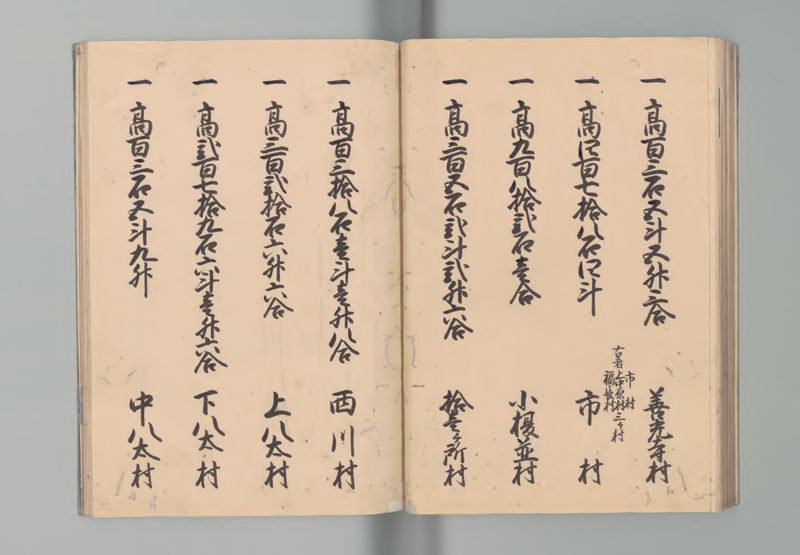 一 高百三石五斗五升三合 善光寺村
一 高四百七拾八石四斗 市村
古者 市村 上中原村 福長村 三ヶ村
一 高九百八拾弐石壱合 小榎並村
一 高三百五石弐斗弐升六合 拾壱ヶ所村
一 高百三拾八石壱斗壱升八合 西川村
一 高三百弐拾石六升六合 上八太村
一 高弐百七拾九石六斗壱升六合 下八太村
一 高百三石五斗九升 中八太村